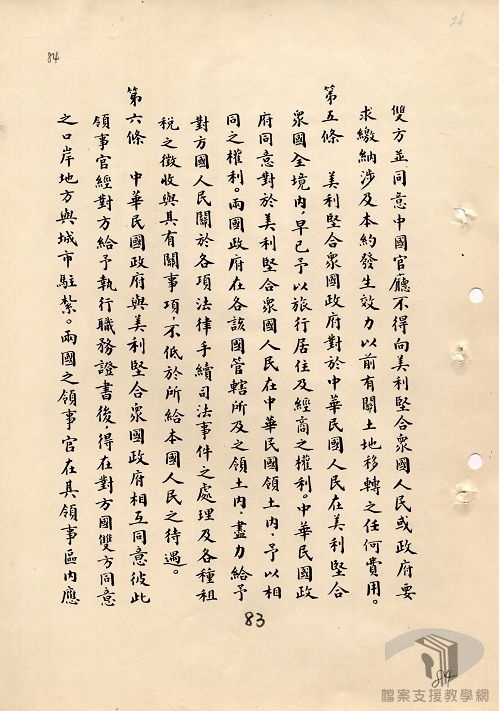 26
84
雙方並同意中國官廳不得向美利堅合衆國人民或政府要
求繳納涉及本約發生效力以前有關土地移轉之任何費用。
第五條 美利堅合衆國政府對於中華民國人民在美利堅合
衆國全境內,早已予以旅行居住及經商之權利。中華民國政
府同意對於美利堅合衆國人民在中華民國領土內,予以相
同之權利。兩國政府在各該國管轄所及之領土內,盡力給予
對方國人民關於各項法律手續司法事件之處理及各種租
稅之徵收與其有關事項,不低於所給本國人民之待遇。
第六條 中華民國政府與美利堅合衆國政府相互同意彼此
領事官經對方給予執行職務證書後,得在對方國雙方同意
之口岸地方與城市駐紮。兩國之領事官在其領事區內應
83
84
檔案支援教學網